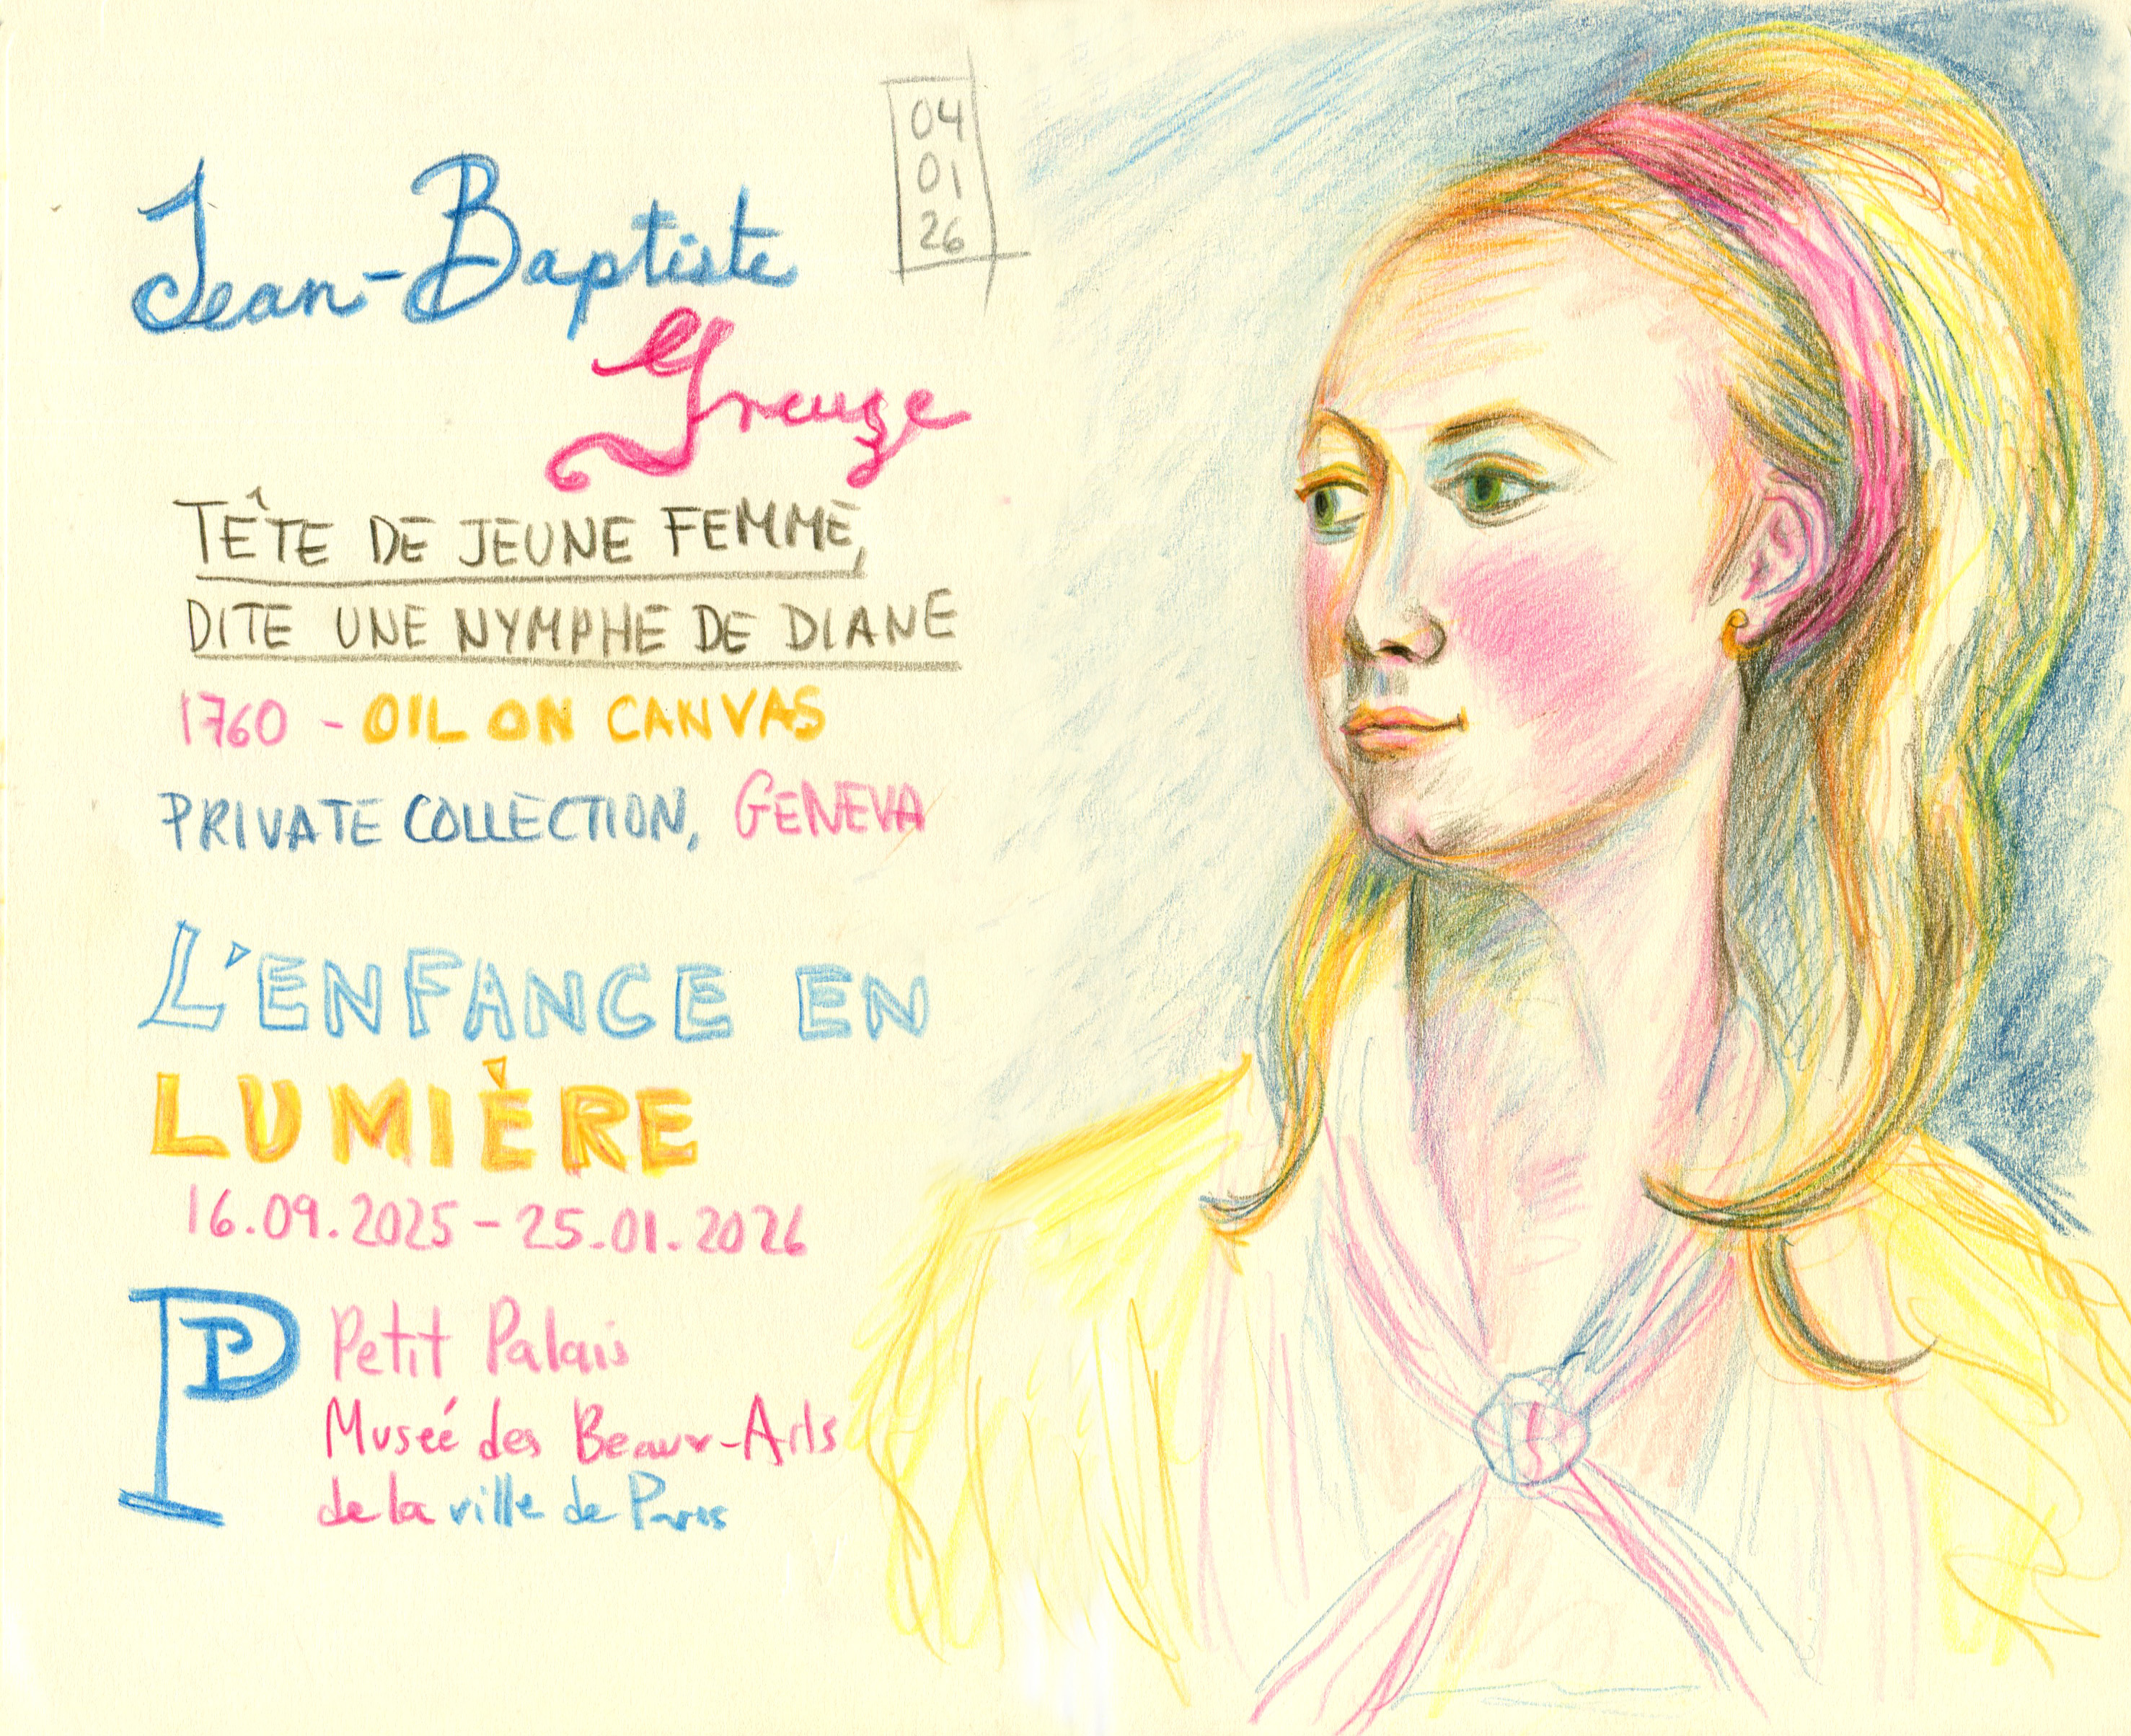 04
01
26
Jean-Baptiste
Greuze
TÊTE DE JEUNE FEMME,
DITE UNE NYMPHE DE DIANE
1760 - OIL ON CANVAS
PRIVATE COLLECTION, GENEVA
L'ENFANCE EN
LUMIÈRE
16.09.2025 - 25.01.2026
PP
Petit Palais
Museé des Beaux-Arts
de la ville de Paris